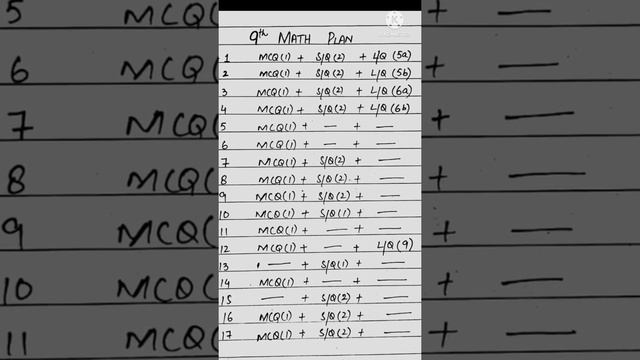 9th MATH PLAN
1 MCQ(1) + S/Q(2) + L/Q (5a)
2 MCQ(1) + S/Q(2) + L/Q (5b)
3 MCQ(1) + S/Q(2) + L/Q (6a)
4 MCQ(1) + S/Q(2) + L/Q (6b)
5 MCQ(1) + — + —
6 MCQ(1) + — + —
7 MCQ(1) + S/Q(2) + —
8 MCQ(1) + S/Q(2) + —
9 MCQ(1) + S/Q(2) + —
10 MCQ(1) + S/Q(1) + —
11 MCQ(1) + — + —
12 MCQ(1) + — + L/Q (9)
13 — + S/Q(1) + —
14 MCQ(1) + — + —
15 — + S/Q(2) + —
16 MCQ(1) + S/Q(2) + —
17 MCQ(1) + S/Q(2) + —